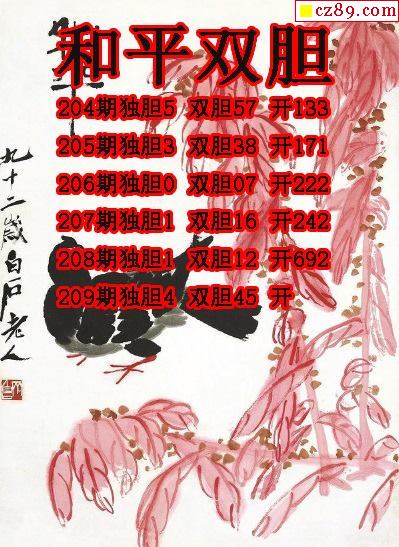 cz89.com
和平双胆
204期独胆5 双胆57 开133
205期独胆3 双胆38 开171
206期独胆0 双胆07 开222
207期独胆1 双胆16 开242
208期独胆1 双胆12 开692
209期独胆4 双胆45 开
九十二岁白石老人